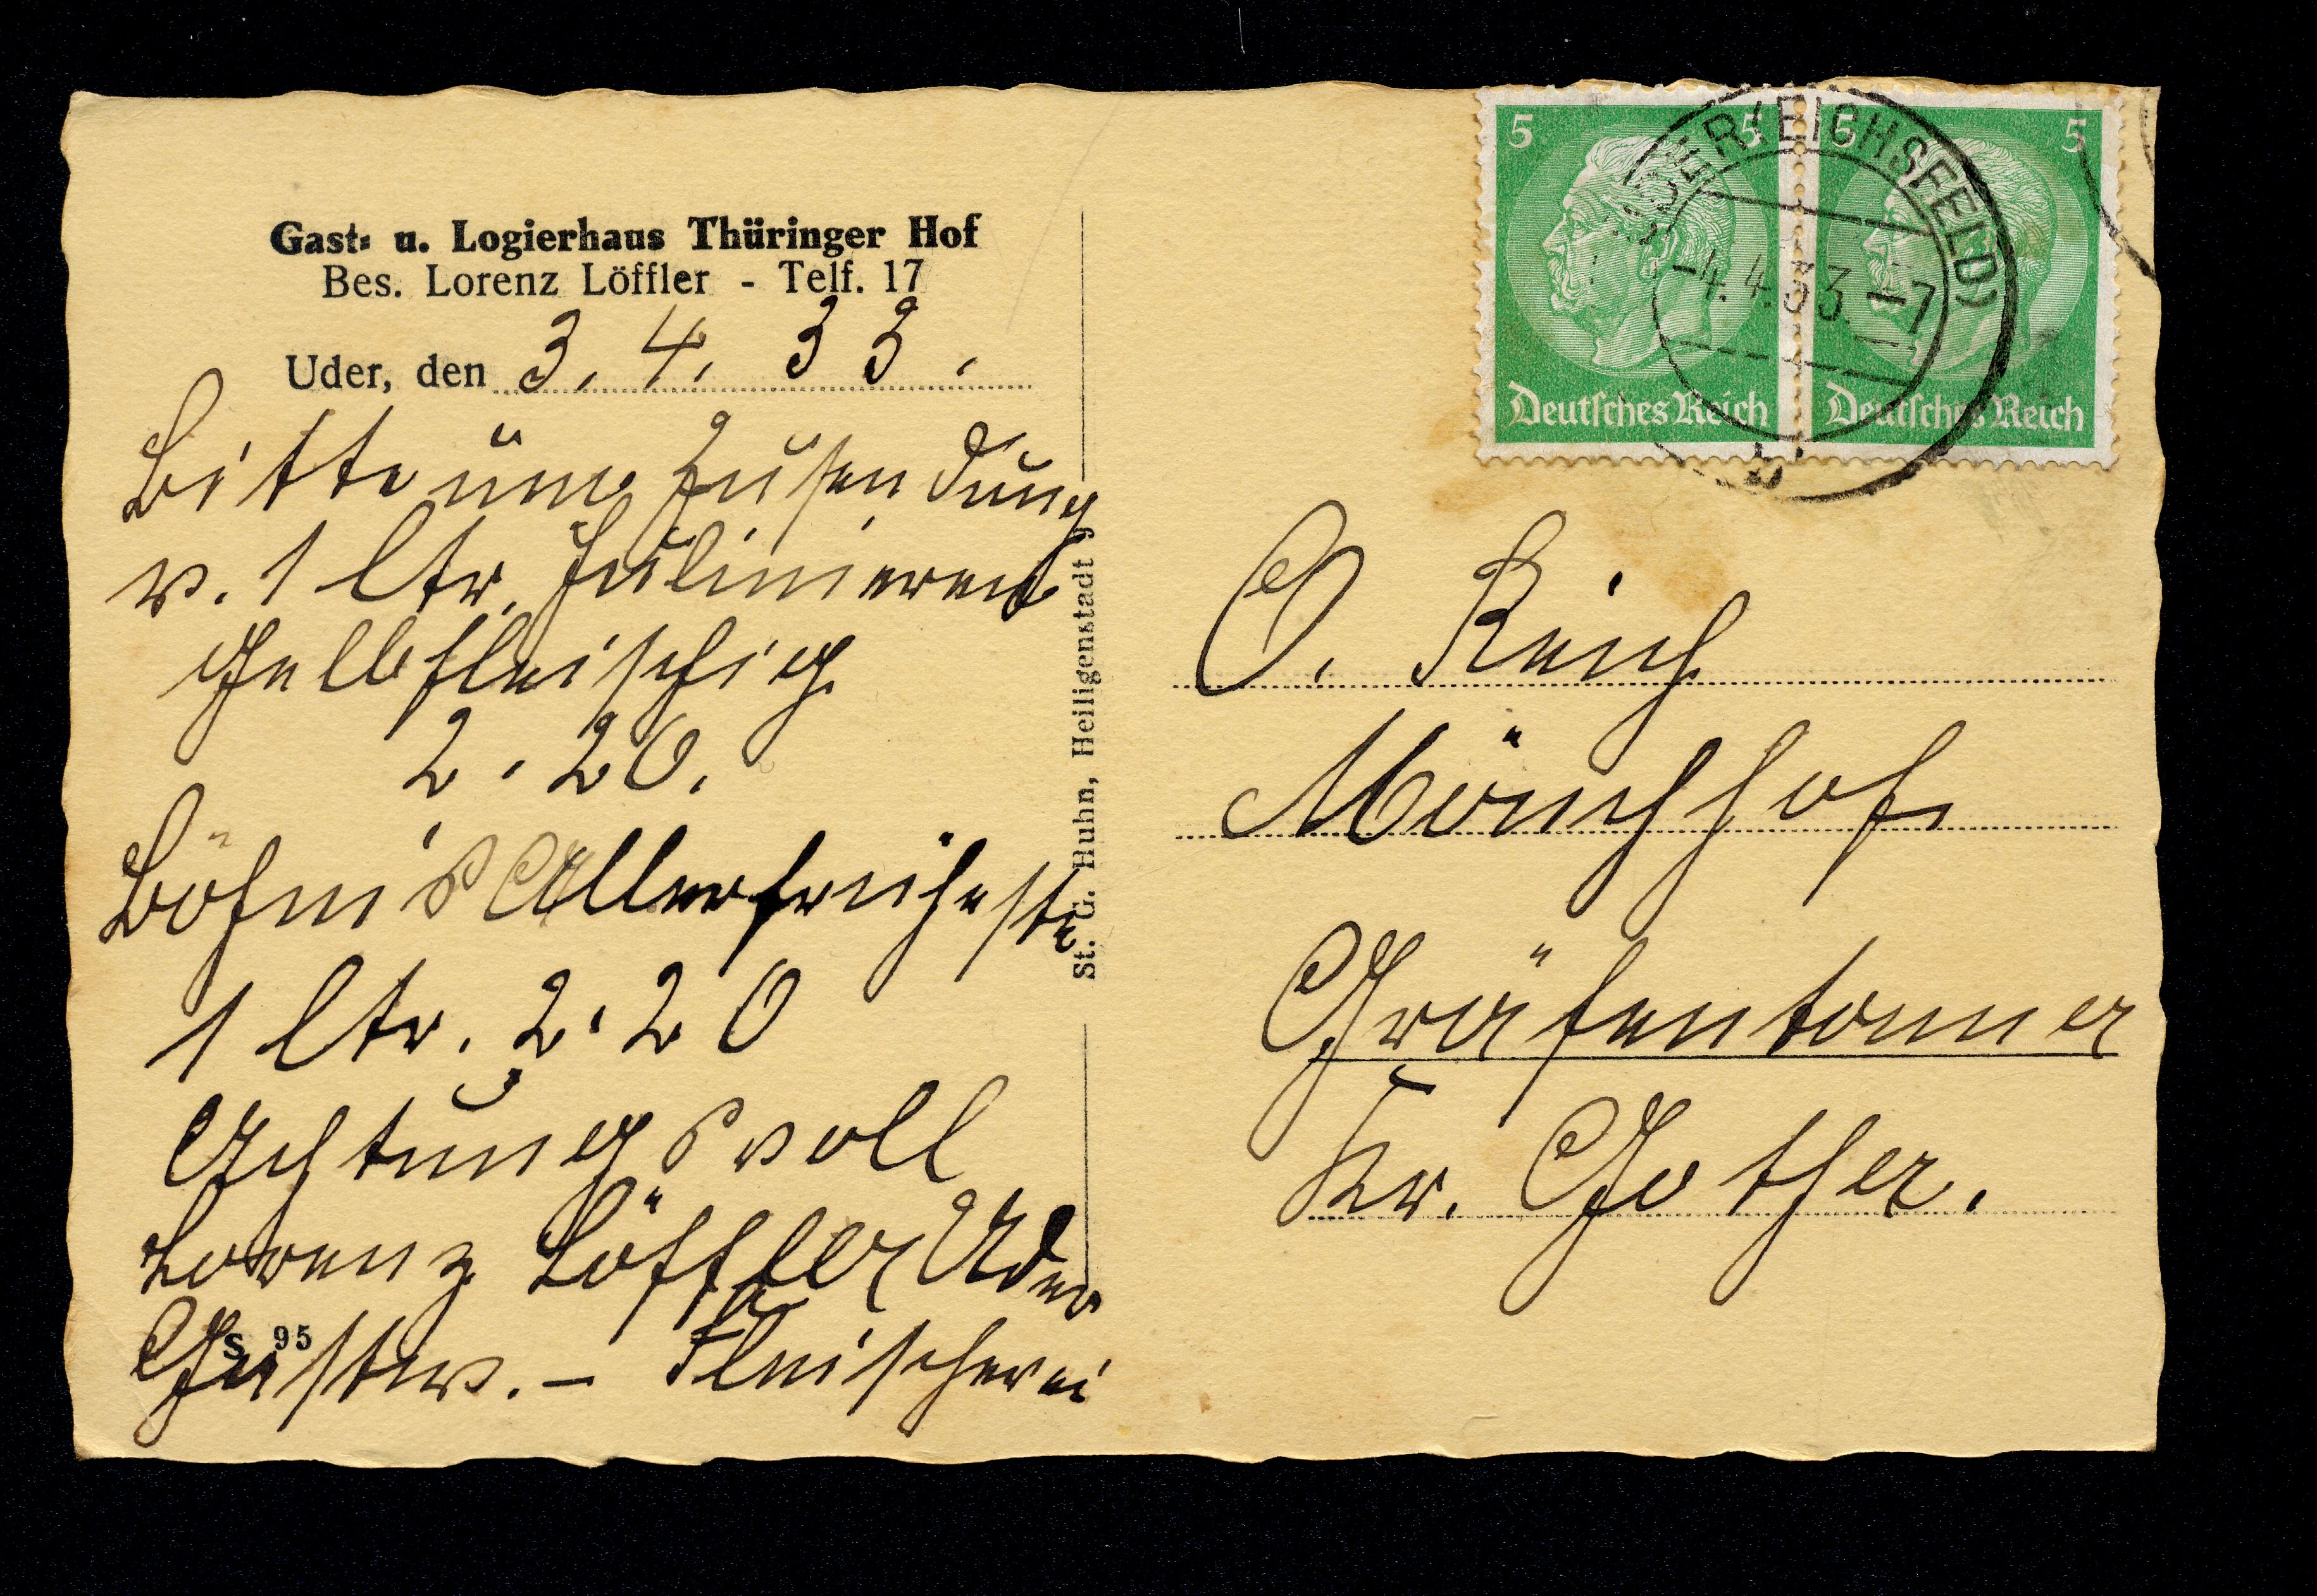 Gast- u. Logierhaus Thüringer Hof
Bes. Lorenz Löffler - Telf. 17
Uder, den 3. 4. 33.
Bitte um Zusendung
v. 1 Ctr.
gelbfleischig
2.20.
Böhm's Allerfrüheste
1 Ctr. 2.20
Achtungsvoll
Lorenz Löffler Uder
Gastw. - Fleischerei
S 95
St. G. Huhn, Heiligenstadt 9
5 5
Deutsches Reich
5 5
Deutsches Reich
UDER (EICHSFELD)
-4.4.33-7
O. Reich
Mönchhof
Gräfentonner
Kr. Gother.